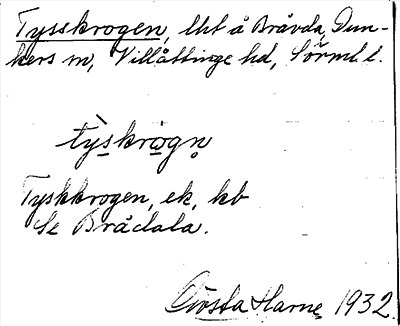 Tysskrogen, lht å Bråvda, Dun-
kers sn, Villåttinge hd, Sörml. l.
tỳskrωgn̥
Tyskkrogen, ek, kb
Se Brådala.
Gösta Harne 1932.